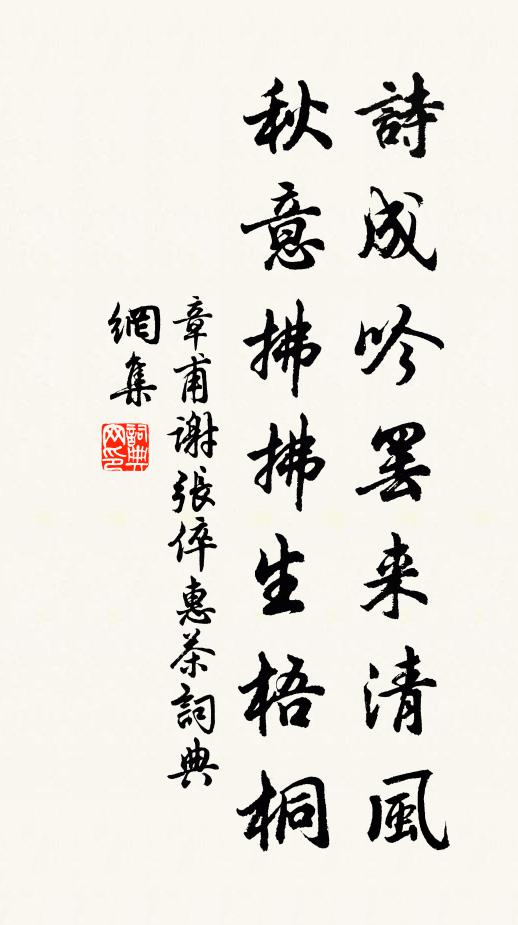 詩成吟罢来清風
秋意拂拂生梧桐
章甫谢張倅惠茶詞典
網集
詞典
网印